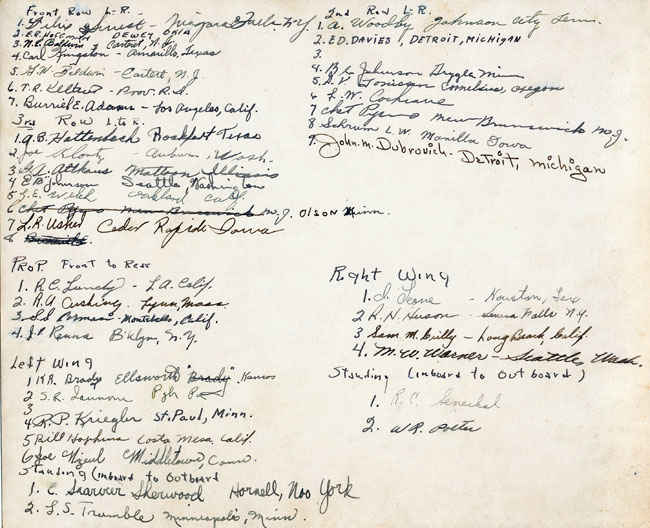 Front Row L-R.
1. Forrest - Niagara Falls N.Y.
2. E.R. Hoffman DEWEY, OHIO
3. N.E. Baldwin Carteret, N.J.
4. Carl Kingston - Amarillo, Texas
5. G.W. Baldwin - Carteret, N.J.
6. T.R. - Prov. R.I.
7. Burriel E. Adams - Los Angeles, Calif.
3rd Row L to R.
1. A.B. Hattenbach Rockport Texas
2. Joe Klontz Auburn, Wash.
3. Althaus Mattoon Illinois
4 E.B. Johnson Seattle Washington
5 G.E. Welch Oakland Calif.
6 Chet Pyrro New Brunswick N.J. OLSON Minn.
7 L.R. Usher Cedar Rapids Iowa
8
PROP. Front to Rear
1. R.C. Lundy - L.A. Calif.
2. R.A. Cushing. Lynn, Mass.
3. Borman - Montebello, Calif.
4. J.P. Renna B'klyn, N.Y.
Left Wing
1. W.R. Brady Ellsworth "Brady" Kansas
2 S.R. Pgh P
3
4 R.P. Kriegler St. Paul, Minn.
5 Bill Hopkins Costa Mesa, Calif.
6 Joe Middletown, Conn.
Standing (inboard to Outboard
1. C. Sherwood Hornell, Noo York
2. L.S. Trumble Minneapolis, Minn.
2nd Row L-R.
1. A. Woodby Johnson City Tenn.
2. ED. DAVIES, DETROIT, MICHIGAN
3.
4. B.L. Johnson Minn
5. Cornelius, Oregon
6 L.W. Cochrane
7 Chet Pyrro New Brunswick N.J.
8 Schrum L.W. Manilla Iowa
9. John. M. Dubrovich - Detroit, Michigan
Right Wing
1. D. - Houston, Tex
2. R.N. Huson - Seneca Falls N.Y.
3. Sam M. Cilly - Long Beach, Calif.
4. M.W. Warner - Seattle, Wash.
Standing (inboard to Outboard)
1. R.C.
2. W.R. Potter